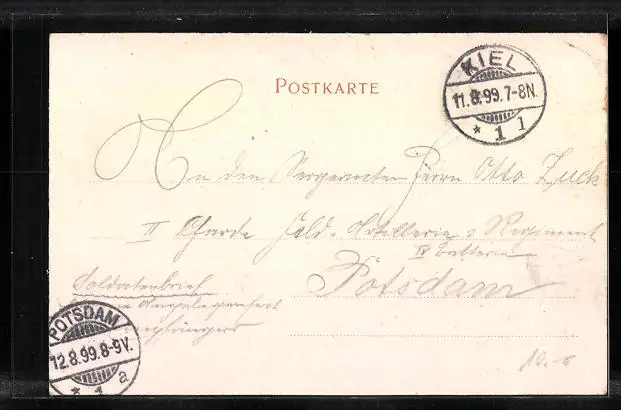 POSTKARTE
KIEL
11.8.99.7-8N.
* 1 1
An den Sergeanten Herrn Otto Zuck
II Garde Feld-Artillerie-Regiment
IV Batterie
Potsdam
Soldatenbrief
Angelegenheit
Empfängers
POTSDAM
12.8.99.8-9V.
* 1 a
10.-